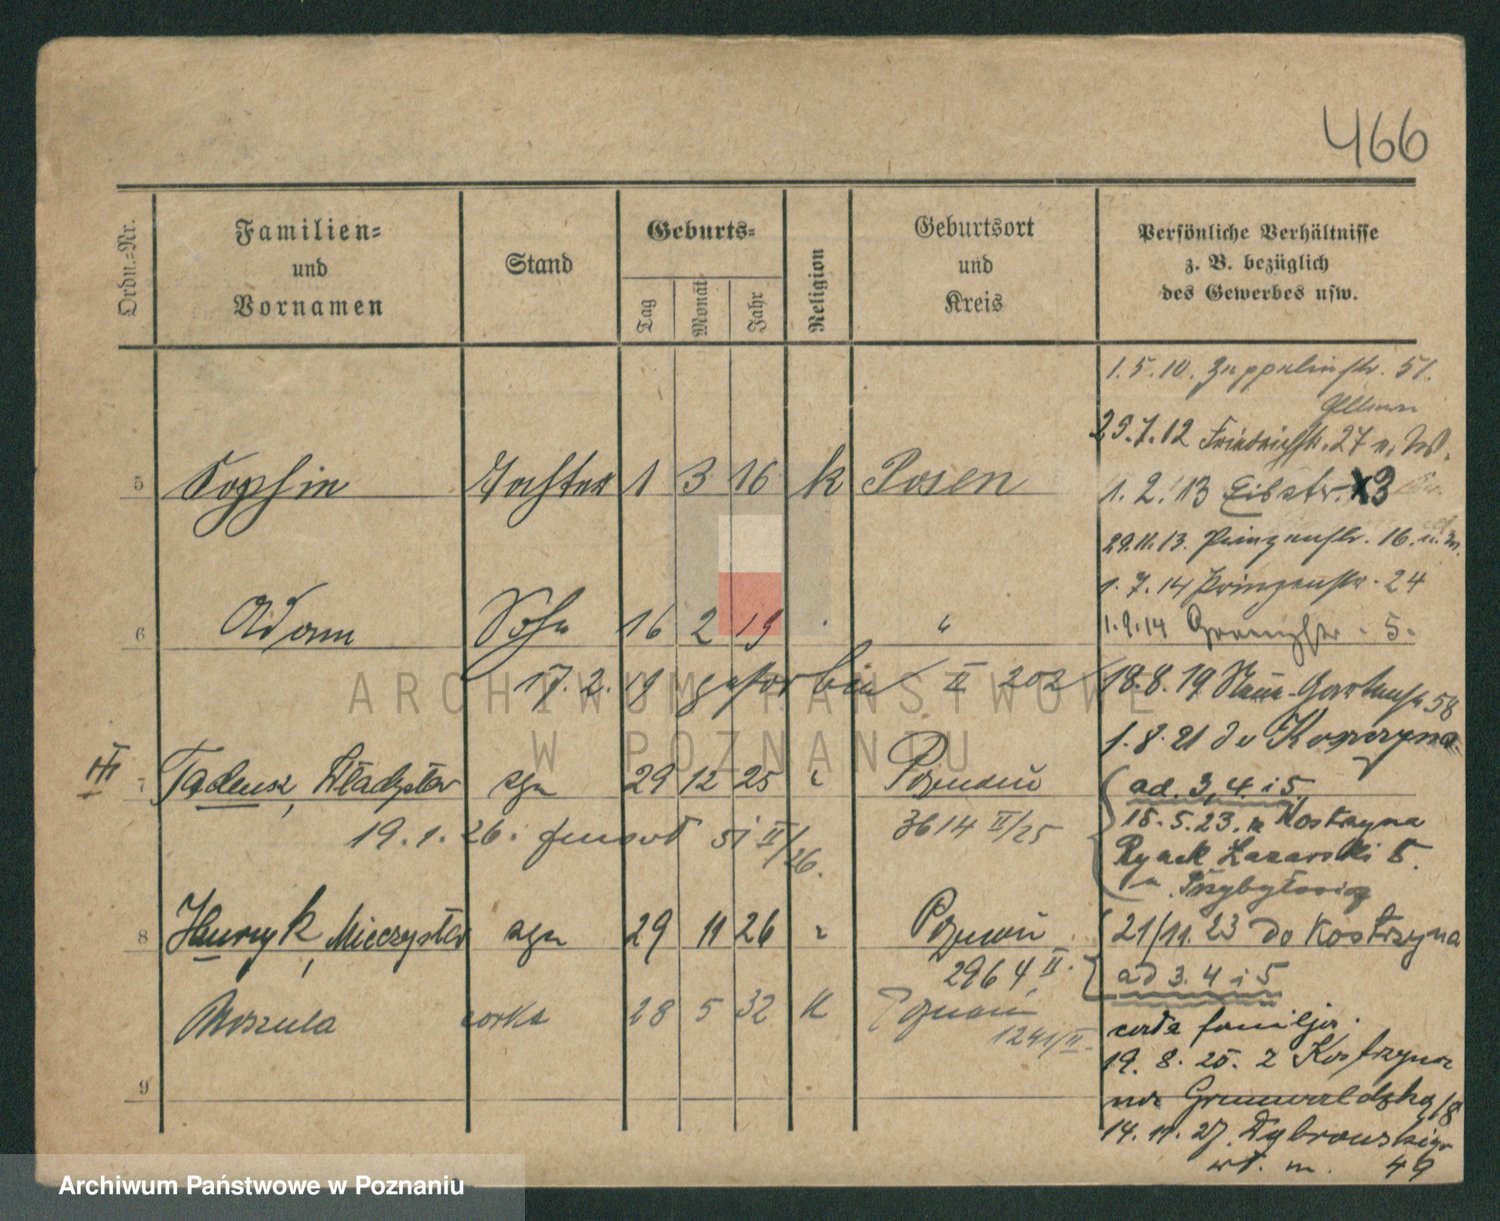 466
Ordn.-Nr.
Familien-
und
Vornamen
Stand
Geburts-
Tag
Monat
Jahr
Religion
Geburtsort
und
Kreis
Persönliche Verhältnisse
z. B. bezüglich
des Gewerbes usw.
1. 5. 10. Zeppelinstr. 51.
5 Sophie Tochter 1 3 16 k Posen
6 Adam Sohn 16 2 19 "
17. 2. 19 gestorben II 202
III
7 Tadeusz, Władysław syn 29 12 25 Poznań
19. 1. 26. 51 II/26. 3614 II/25
8 Henryk, Mieczysław syn 29 11 26 Poznań
2964 II.
córka 28 5 32 K Poznań
1241/II.
9
Friedrichstr. 27
1. 2. 13 Eibstr. 3
29. 11. 13. Prinzenstr. 16.
1. 7. 14 Prinzenstr. 24
1. 9. 14 5.
18. 8. 19. Neue-Gartenstr 58
1. 8. 21 do
ad. 3, 4. i 5.
15. 5. 23. z Kostrzyna
Rynek Łazarski 5.
21/11. 23 do Kostrzyna
ad 3. 4 i 5
cała familja.
19. 8. 25. z Kostrzyna
na Grunwaldzką 18
14. 11. 27. Dąbrowskiego
m. 49
ARCHIWUM PAŃSTWOWE
W POZNANIU
Archiwum Państwowe w Poznaniu